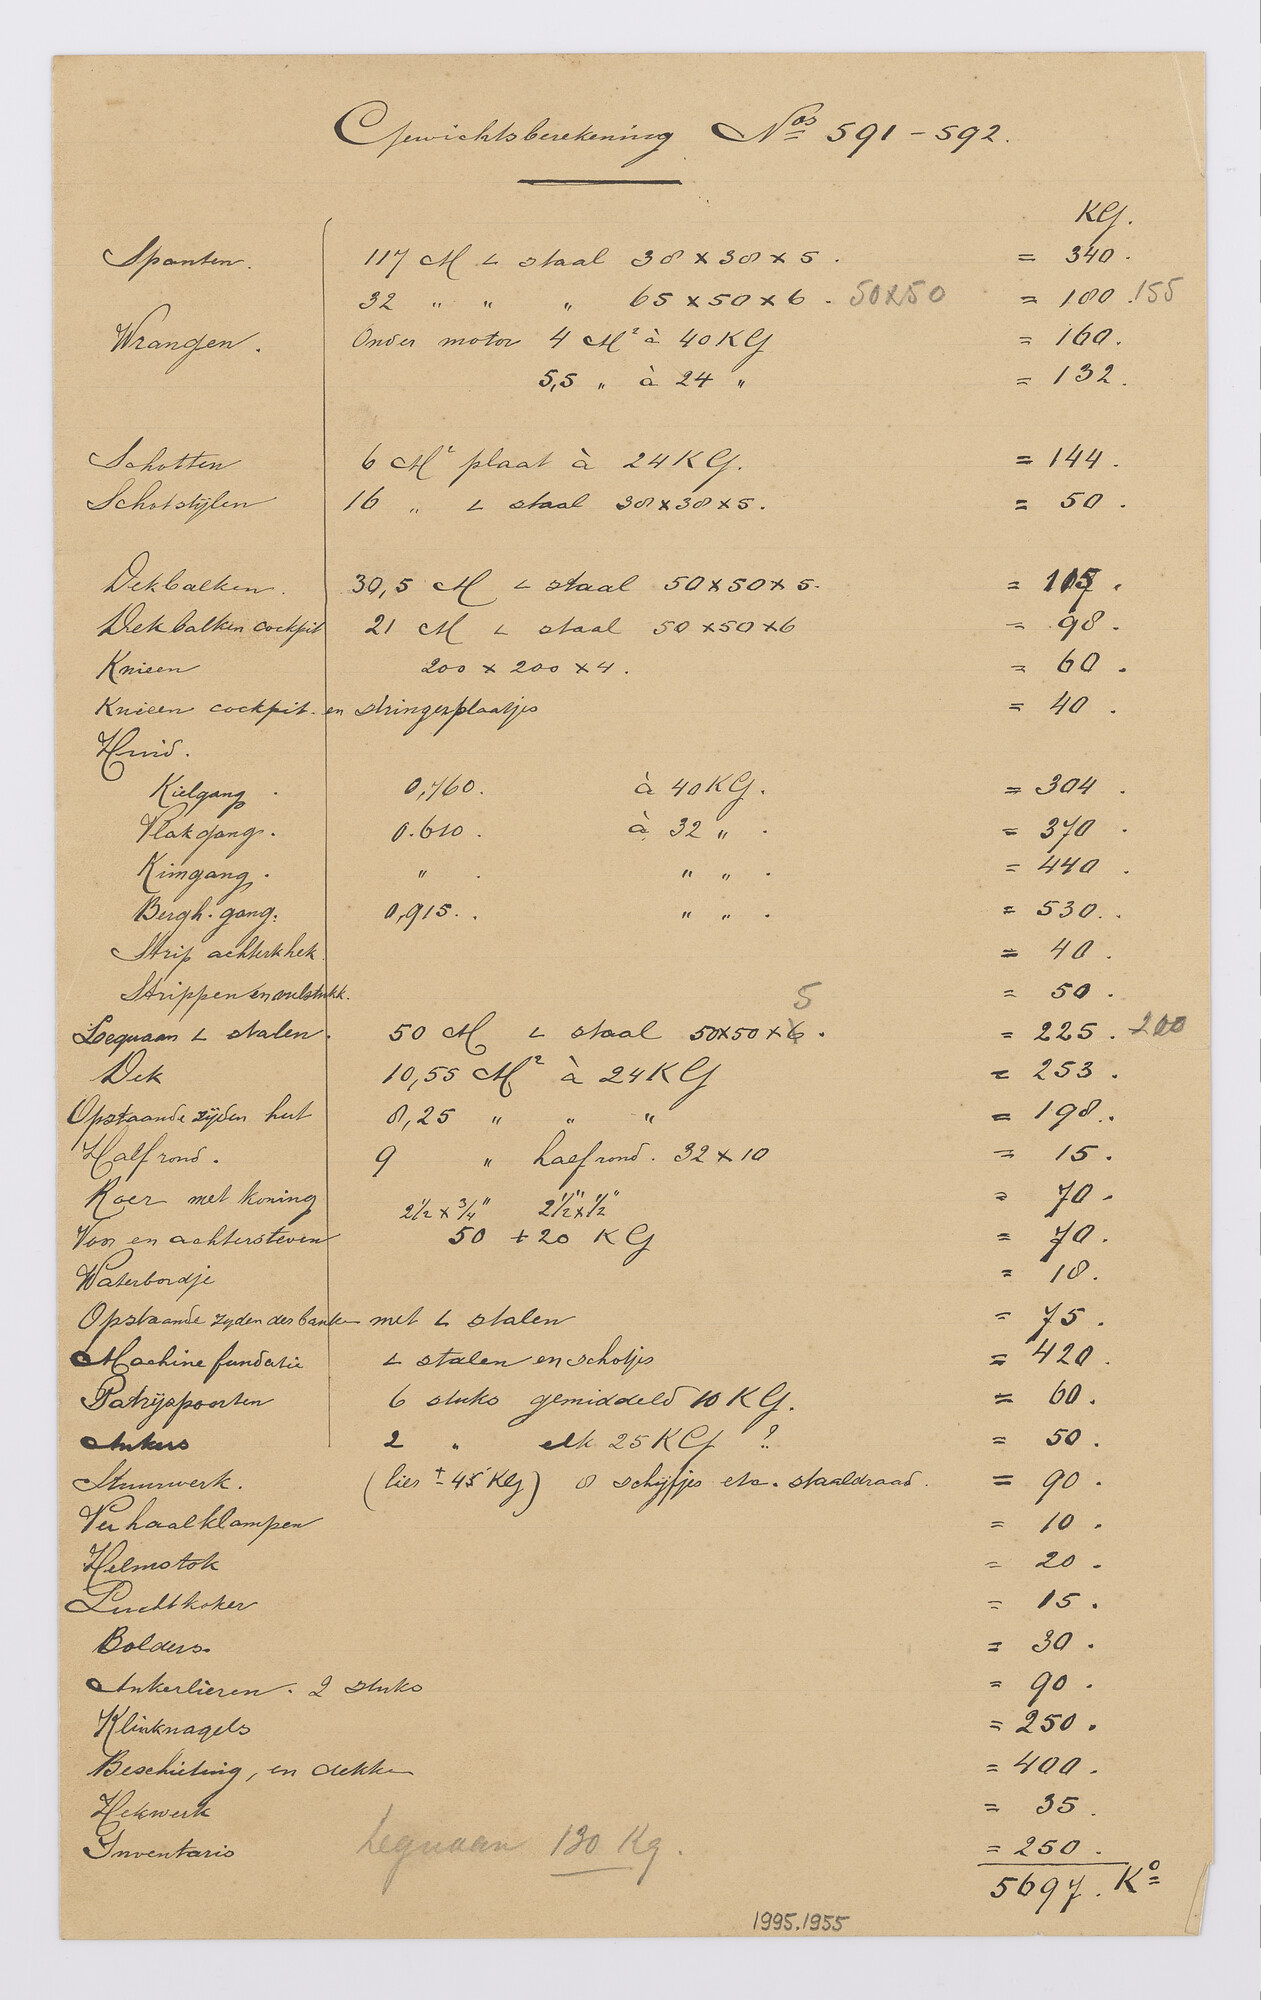 Gewichtsberekening Nos 591-592.
KG.
Spanten. 117 M L staal 38 x 38 x 5. = 340.
32 " " " 65 x 50 x 6. 50x50 = 180. 155
Wrangen. Onder motor 4 M² à 40 KG = 160.
5,5 " à 24 " = 132.
Schotten 6 M² plaat à 24 KG. = 144.
Schotstijlen 16 " L staal 38 x 38 x 5. = 50.
Dekbalken. 30,5 M L staal 50 x 50 x 5. =
Dekbalken cockpit 21 M L staal 50 x 50 x 6 = 98.
Knieen 200 x 200 x 4. = 60.
Knieen cockpit en stringerplaatjes = 40.
Huid.
Kielgang. 0,760. à 40 KG. = 304.
Vlakgang. 0.610. à 32 " . = 370.
Kimgang. " . " " . = 440.
Bergh. gang. 0,915. . " " . = 530.
Strip achterk hek. = 40.
Strippen en vulstukk. = 50.
5
Leguaan L stalen. 50 M L staal 50x50x6. = 225. 200
Dek 10,55 M² à 24 KG = 253.
Opstaande zijden hut 8,25 " " " = 198.
Halfrond. 9 " halfrond. 32 x 10 = 15.
Roer met koning 2½ x ¾" 2½" x ½" = 70.
Voor en achtersteven 50 + 20 KG = 70.
Waterbordje = 18.
Opstaande zyden der banken met L stalen = 75.
Machine fundatie L stalen en schotjes = 420.
Patrijspoorten 6 stuks gemiddeld 10 KG. = 60.
Ankers 2 " elk 25 KG ? = 50.
Stuurwerk. (lier ± 45 KG) 8 schijfjes etc. staaldraad. = 90.
Verhaalklampen = 10.
Helmstok = 20.
Luchtkoker = 15.
Bolders. = 30.
Ankerlieren. 2 stuks = 90.
Klinknagels = 250.
Beschieting, en dekken = 400.
Hekwerk = 35.
Inventaris = 250.
Leguaan 130 Kg.
5697. Ko
1995.1955